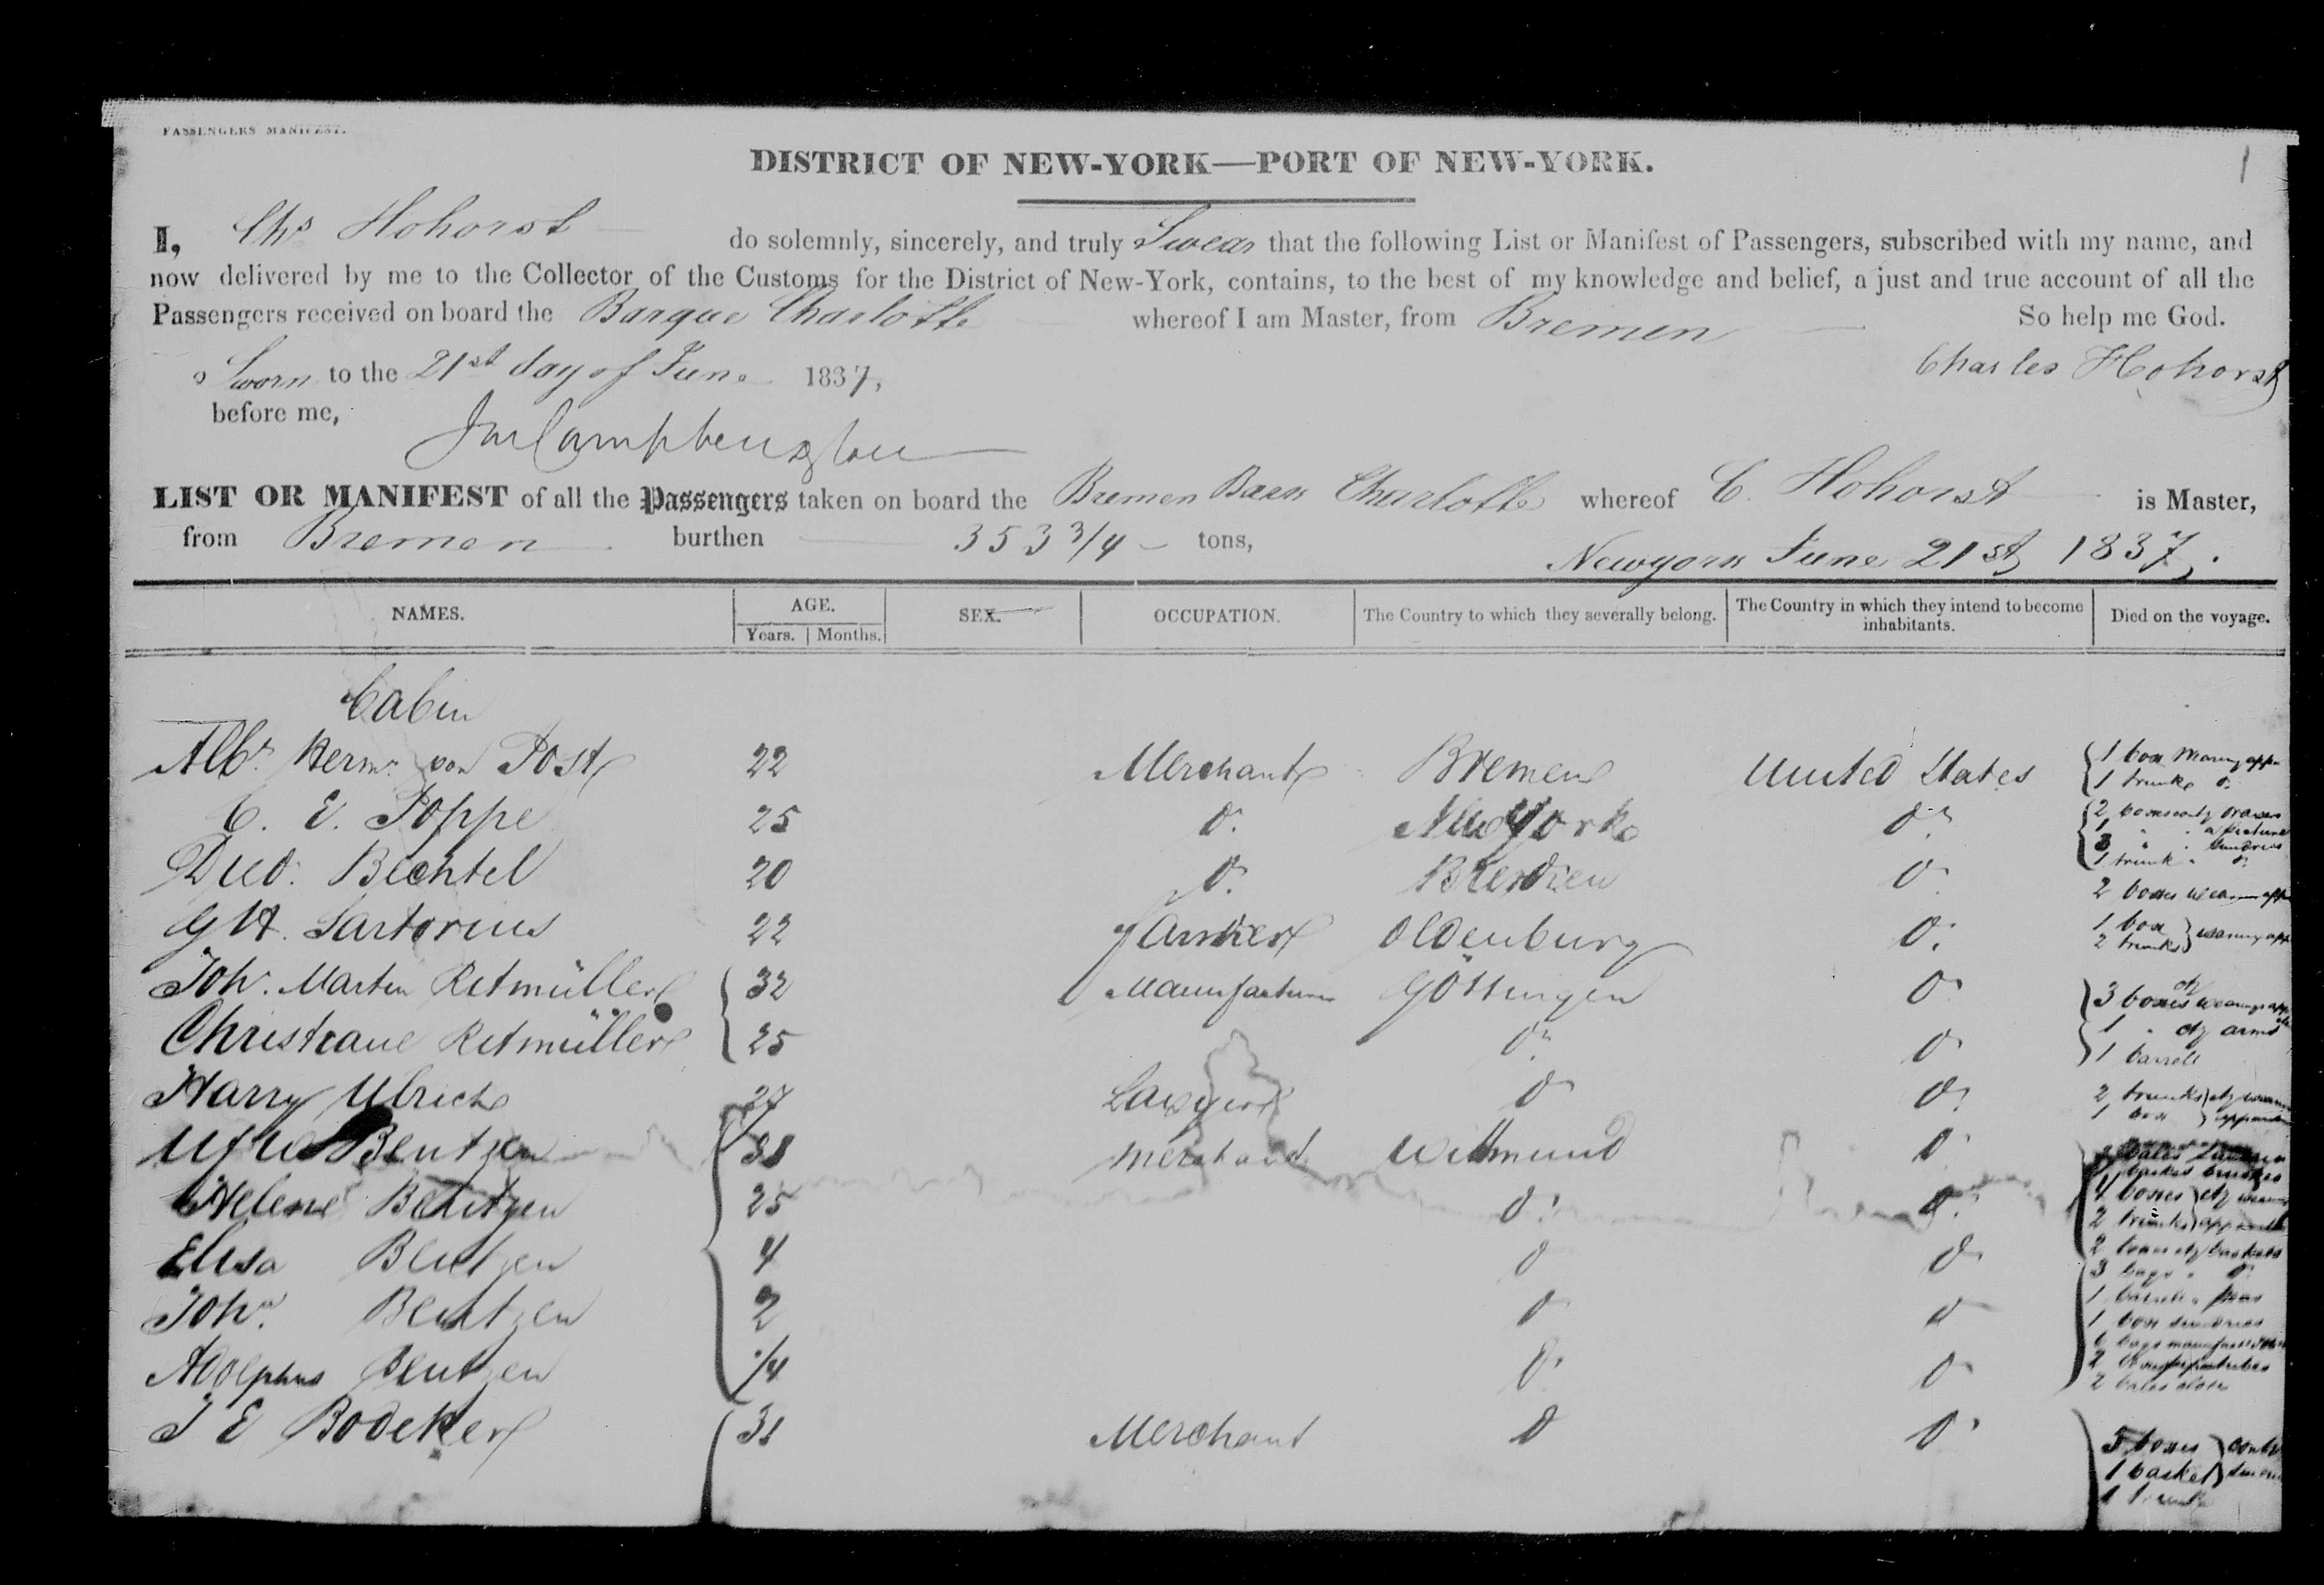 PASSENGERS MANIFEST.
1
DISTRICT OF NEW-YORK—PORT OF NEW-YORK.
I, Chs Hohorst do solemnly, sincerely, and truly Swear that the following List or Manifest of Passengers, subscribed with my name, and
now delivered by me to the Collector of the Customs for the District of New-York, contains, to the best of my knowledge and belief, a just and true account of all the
Passengers received on board the Barque Charlotte whereof I am Master, from Bremen So help me God.
Sworn to the 21st day of June 1837, Charles Hohorst
before me,
LIST OR MANIFEST of all the Passengers taken on board the Bremen Bark Charlotte whereof C. Hohorst is Master,
from Bremen burthen 353 3/4 tons,
Newyork June 21st 1837.
NAMES. AGE. SEX. OCCUPATION. The Country to which they severally belong. The Country in which they intend to become inhabitants. Died on the voyage.
Years. Months.
Cabin
Albr. Herm. von Post 22 Merchant Bremen United States 1 box
1 trunk do
C. E. Poppe 25 do. New York do 2
Died. Bechtel 20 do. Bremen do 2 boxes
G H. Sartorius 22 Oldenburg do. 1 box
2 trunks
Joh. Martin Ritmüller 32 Manufacturer Göttingen do 3 boxes
Christiane Ritmüller 25 do do 1 arms
1 barrell
Harry Ulrich 27 Lawyer do do 2 trunks
1 box
Bentzen 38 Merchant Wittmund do
Helene Bentzen 25 do do 4 boxes
2 trunks
Elisa Bentzen 4 do do 2
3 bags do
Joh. Bentzen 2 do do 1
1 box sundries
Adolphus Bentzen 1/4 do do 6 bags
2
2 bales
J E Bödeker 31 Merchant do do 5 boxes
1 basket
1 trunk